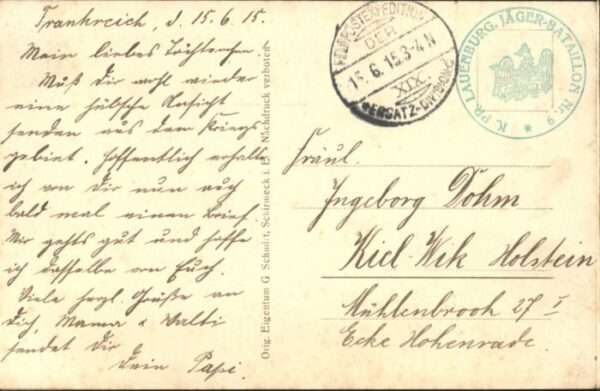 Frankreich, d. 15.6.15.
Mein liebes Töchterchen
Muß Dir wohl wieder
eine hübsche Ansicht
senden aus dem Kriegs
gebiet. Hoffentlich erhalte
ich von Dir nun auch
bald mal einen Brief.
Mir gehts gut und hoffe
ich dasselbe von Euch.
Viele herzl. Grüße an
Dich, Mama & Walti
sendet Dir
Dein Papi.
Orig. Eigentum G. Schmidt, Schirmeck i. E. Nachdruck verboten
FELDPOSTEXPEDITION
DER
15.6.15.3-4N
XIX.
ERSATZ-DIVISION
K. PR. LAUENBURG. JÄGER-BATAILLON Nr. 9
Fräul.
Ingeborg Dohm
Kiel-Wik Holstein
Mühlenbrook 27 I
Ecke Hohenrade.